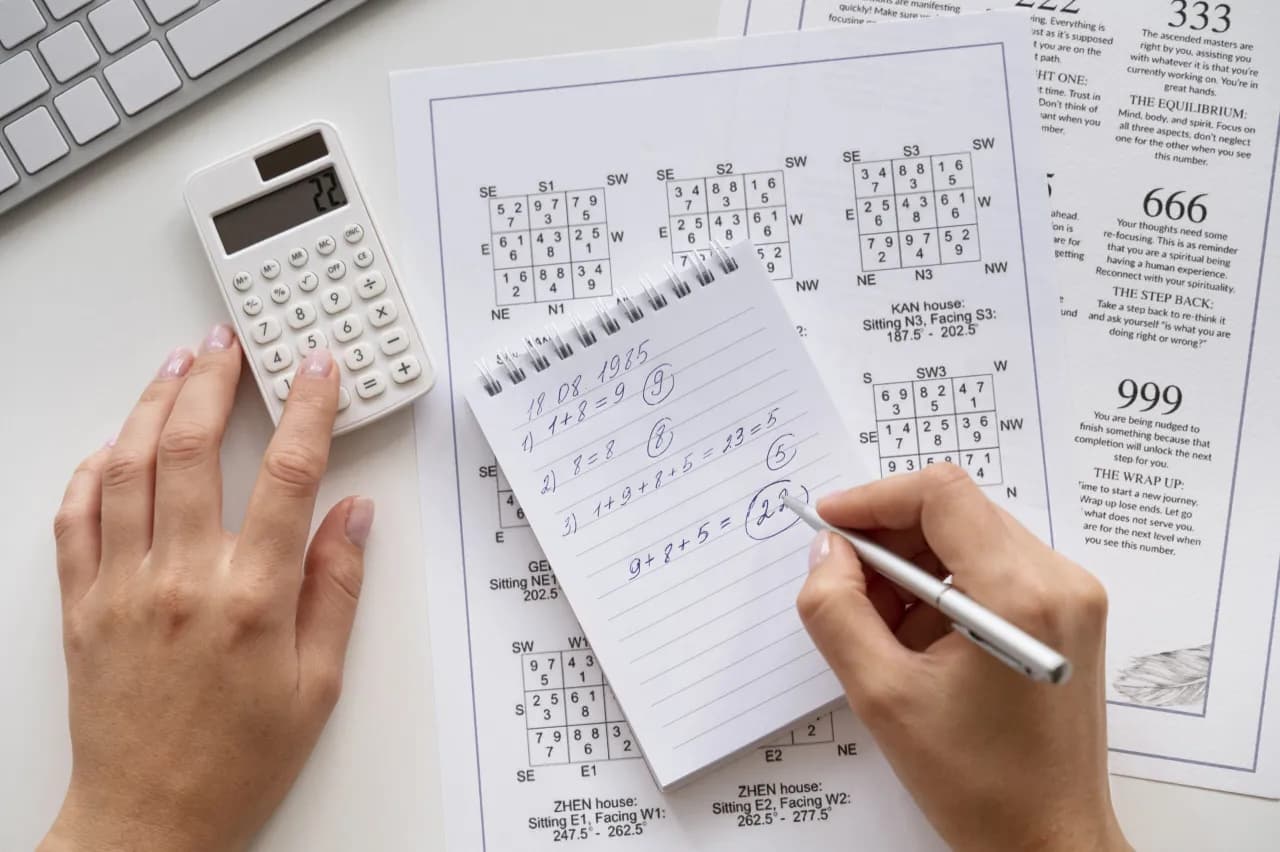 22
M+ M- MR MC
% √ OFF CE
7 8 9 ÷
4 5 6 ×
1 3 −
= +
SE S1 SW
5 2 9 7 7 9
7 3 5
E 6 1 4 3 2 5 W
6 8 1
1 6 8 8 3 4
2 4 9
NE N1
SE S2 SW
3 4 8 8 1 6
7 3 5
E 2 5 4 3 6 1 W
6 8 6
7 5 2
9
NW
SE S3 SW
3 4 8 8 1 6
7 3 5
E 2 5 4 3 6 1 W
6 8 6
7 9 9 7 5 2
2 4 9
NE N3 NW
KAN house:
Sitting N3, Facing S3:
187.5° - 202.5°
S SW3 W
6 9 8 2 4 7
3 5 1
SE 1 4 2 5 3 6 NW
7 8 9
9 3 7 1
4
N
18 08 1985
1) 1+8=9 9
2) 8=8 8
3) 1+9+8+5=23=5
5
9+8+5= 22
SE
4
6
E
Sitting NE1
202.5°
SW W1
9 7 4 3
5 1
S 2 5 6 1
3 8
7 9 8 8 3
7 6 2
SE E1
ZHEN house:
Sitting E1, Facing W1:
247.5° - 262.5°
2
E2 NE
ZHEN house:
Sitting E2, Facing W2:
262.5° - 277.5°
are manifesting
quickly! Make
focusing
222
Everything is
as it's supposed
you are on the
path.
ONE:
time. Trust in
Don't think of
when you
333
The ascended masters are
right by you, assisting you
with whatever it is that you're
currently working on. You're in
great hands.
THE EQUILIBRIUM:
Mind, body, and spirit. Focus on
all three aspects, don't neglect
one for the other when you see
this number.
ahead.
is
are for
getting
666
Your thoughts need some
re-focusing. This is as reminder
that you are a spiritual being
having a human experience.
Reconnect with your spirituality.
THE STEP BACK:
Take a step back to re-think it
and ask yourself "is what you are
doing right or wrong?"
999
You are being nudged to
finish something because that
completion will unlock the next
step for you.
THE WRAP UP:
Time to start a new journey.
Wrap up lose ends. Let go
what does not serve you.
are for the next level when
you see this number.